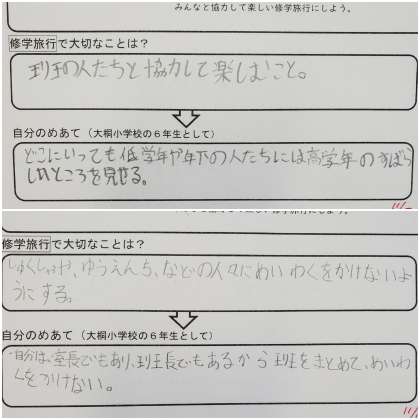 みんなと協力して楽しい修学旅行にしよう。
修学旅行で大切なことは？
班の人たちと協力して楽しむこと。
自分のめあて（大桐小学校の６年生として）
どこにいっても低学年や年下の人たちには高学年のすばら
しいところを見せる。
修学旅行で大切なことは？
しゅくしゃや、ゆうえんち、などの人々にめいわくをかけないよ
うにする。
自分のめあて（大桐小学校の６年生として）
自分は、室長でもあり、班長でもあるから班をまとめて、めいわ
くをかけない。